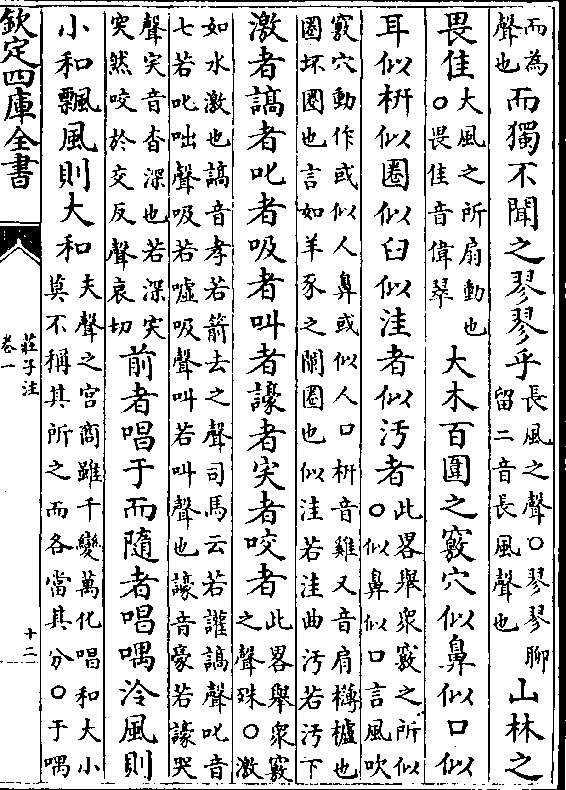 而為聲也而獨不聞之翏翏乎長風之聲○翏翏聊留二音長風聲也山林之
畏佳大風之所扇動也○畏佳音偉翠大木百圍之竅穴似鼻似口似
耳似枅似圈似臼似洼者似汚者此畧舉衆竅之所似○似鼻似口言風吹
竅穴動作或似人鼻或似人口枅音雞又音肩欂櫨也
圈坏圈也言如羊豕之闌圈也似洼若洼曲汚若汚下
激者謞者叱者吸者叫者譹者宎者咬者此畧舉衆竅之聲殊○激
如水激也謞音孝若箭去之聲司馬云若讙謞聲叱音
七若叱咄聲吸若噓吸聲叫若叫聲也譹音豪若譹哭
聲宎音杳深也若深宎突然咬於交反聲哀切前者唱于而隨者唱喁泠風則
小和飄風則大和夫聲之宮商雖千變萬化唱和大小莫不稱其所之而各當其分○于喁
欽定四庫全書
莊子注
卷一
十二